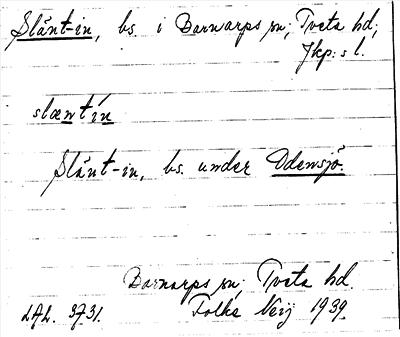 Slänt-in, bs. i Barnarps sn; Tveta hd;
Jkp:s l.
slæntín
Slänt-in, bs. under Odensjö.
Barnarps sn; Tveta hd.
LAL. 3731. Folke Neij 1939.